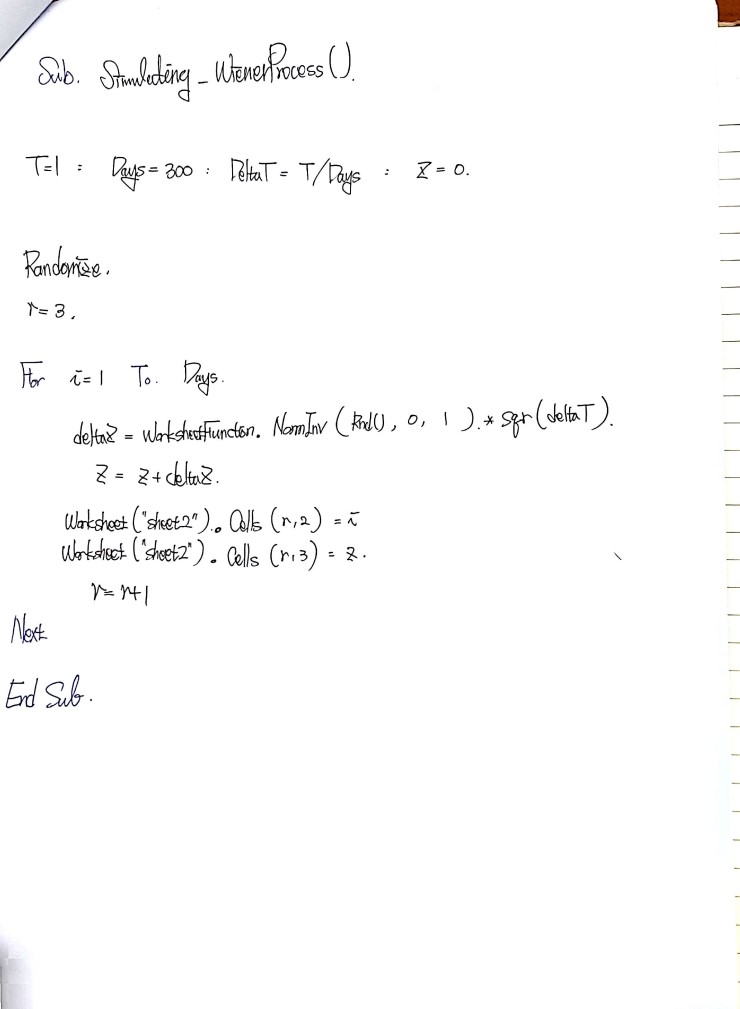 Sub. Simulating_WienerProcess().
T=1 : Days = 300 : DeltaT = T/Days : Z = 0.
Randomize.
r = 3.
For i=1 To. Days.
deltaZ = WorksheetFunction. NormInv (Rnd(), 0, 1).* Sqr(deltaT).
Z = Z + deltaZ.
Worksheet ("sheet2"). Cells (r,2) = i
Worksheet ("sheet2"). Cells (r,3) = Z.
r = r+1
Next
End Sub.